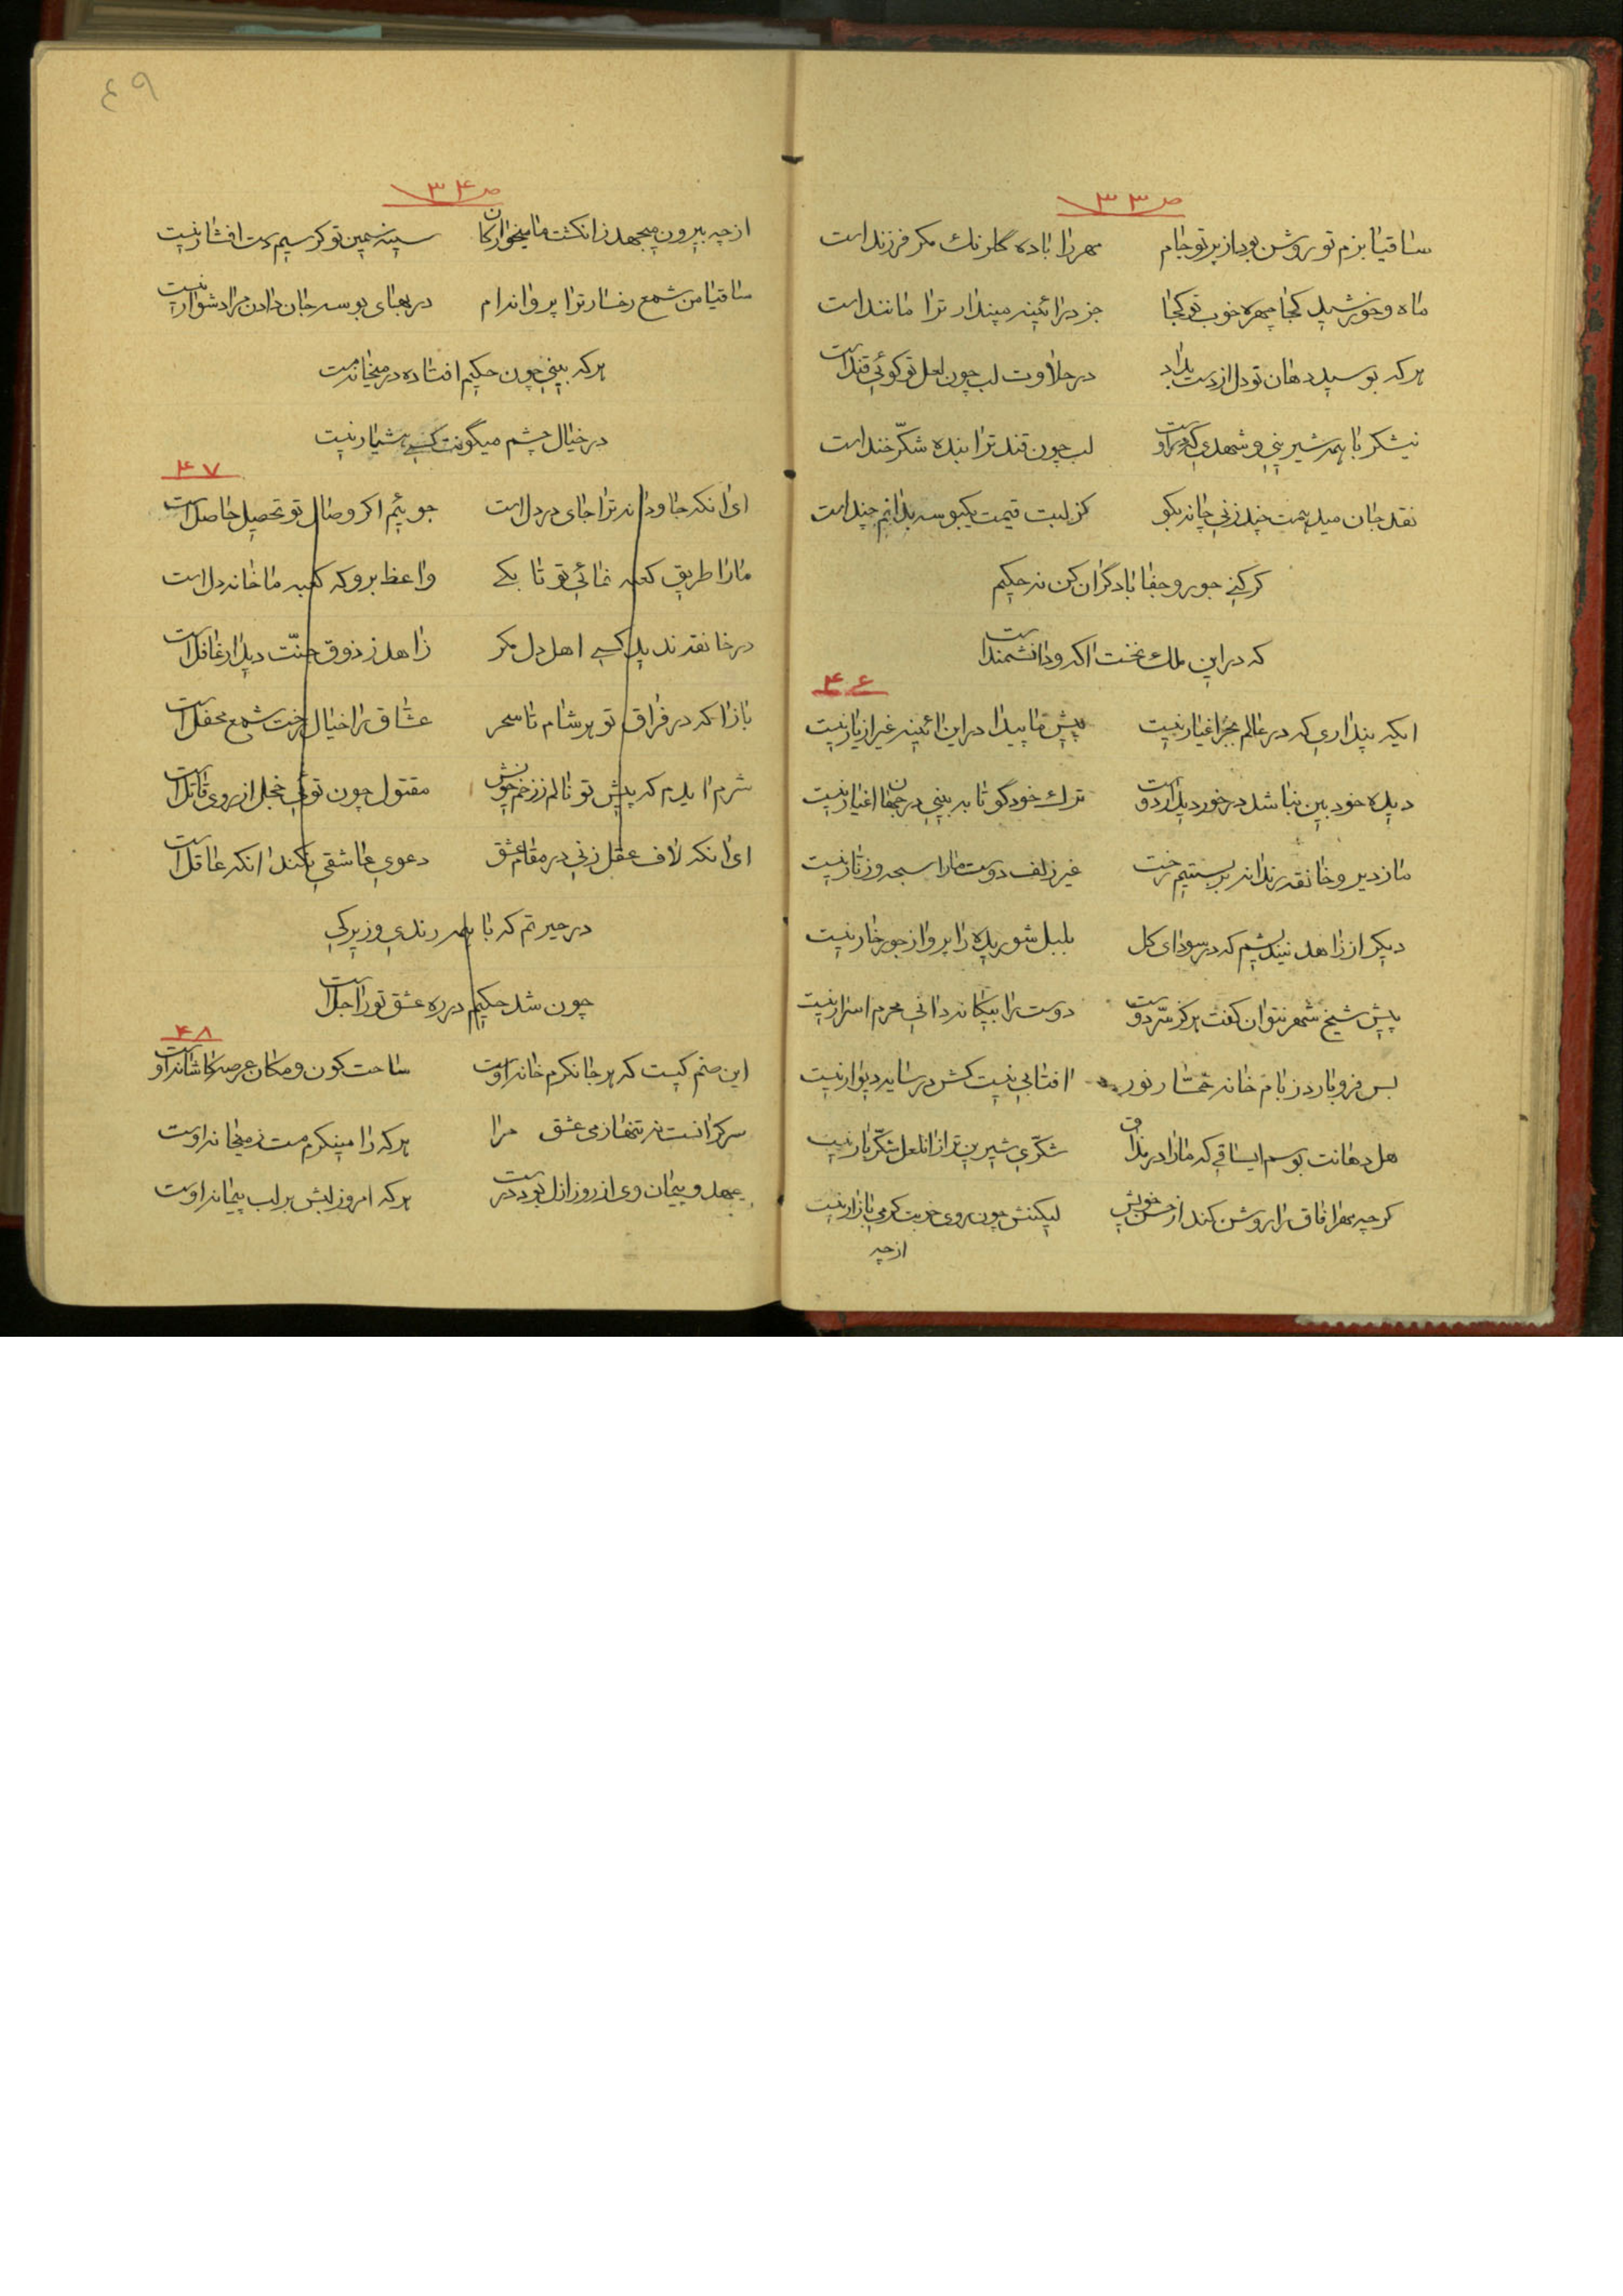 ص ۳۳
ساقیا بزم تو روشن بود از پرتو جام مهر را باده گلرنک مکر فرزند است
ماه و خورشید کجا چهره خوب تو کجا جز در ائینه مپندار ترا مانند است
هر که بوسید دهان تو دل از دست بداد در حلاوت لب چون لعل تو کوئی قند است
نیشکر با همه شیرینی و شهدی که در اوست لب چون قند ترا بنده شکّر خند است
نقد جان میدهمت چند زنی چانه بکو کز لبت قیمت یکبوسه بدانم چند است
کر کنی جور و جفا با دگران کن نه حکیم
که در این ملک نخست اکه و دانشمند است
۴۶
ایکه پنداری که در عالم بجز اغیار نیست پیش ما پیدا در این ائینه غیر از یار نیست
دیده خود بین نباشد در خور دیدار دوست ترک خود گو تا به بینی در جهان اغیار نیست
ما ز دیر و خانقه رندانه بر بستیم رخت غیر زلف دوست ما را سبحه و زنار نیست
دیکر از زاهد نیندیشم که در سودای کل بلبل شوریده را پروا ز جور خار نیست
پیش شیخ شهر نتوان کفت هرکز سرّ دوست دوست را بیکانه دانی محرم اسرار نیست
بس فرو بارد ز بام خانه خمّار نور افتابی نیست کش در سایه دیوار نیست
هل دهانت بوسم ایساقی که ما را در مذاق شکّری شیرین تر از انلعل شکّر بار نیست
کرچه مهر افاق را روشن کند از حسن خویش لیکنش چون روی خوبت کرمی بازار نیست
ازچه
۴۹
ص ۳۴
ازچه بیرون میجهد ز انکشت ما میخوارکان سینه سیمین تو کر سیم دست افشار نیست
ساقیا من شمع رخسار ترا پروانه ام در بهای بوسه جان دادن مرا دشوار نیست
هر که بینی چون حکیم افتاده در میخانه مست
در خیال چشم میگونت کسی هشیار نیست
۴۷
ای انکه جاودانه ترا جای در دل است جوئیم اکر وصال تو تحصیل حاصل است
ما را طریق کعبه نمائی تو تا بکی واعظ برو که کعبه ما خانه دل است
در خانقه ندید کسی اهل دل مکر زاهد ز ذوق جنّت دیدار غافل است
باز ا که در فراق تو هر شام تا سحر عشّاق را خیال رخت شمع محفل است
شرم ایدم که پیش تو نالم ز زخم خویش مقتول چون توئی خجل از روی قاتل است
ای انکه لاف عقل زنی در مقام عشق دعوی عاشقی نکند انکه عاقل است
در حیرتم که با همه رندی و زیرکی
چون شد حکیم در ره عشق تو را جل است
۴۸
این صنم کیست که هر جا نکرم خانه اوست ساحت کون و مکان عرصه کاشانه اوست
سرکرانست نه تنها ز می عشق مرا هر که را مینکرم مست ز میخانه اوست
عهد و پیمان وی از روز ازل بود درست هر که امروز لبش بر لب پیمانه اوست